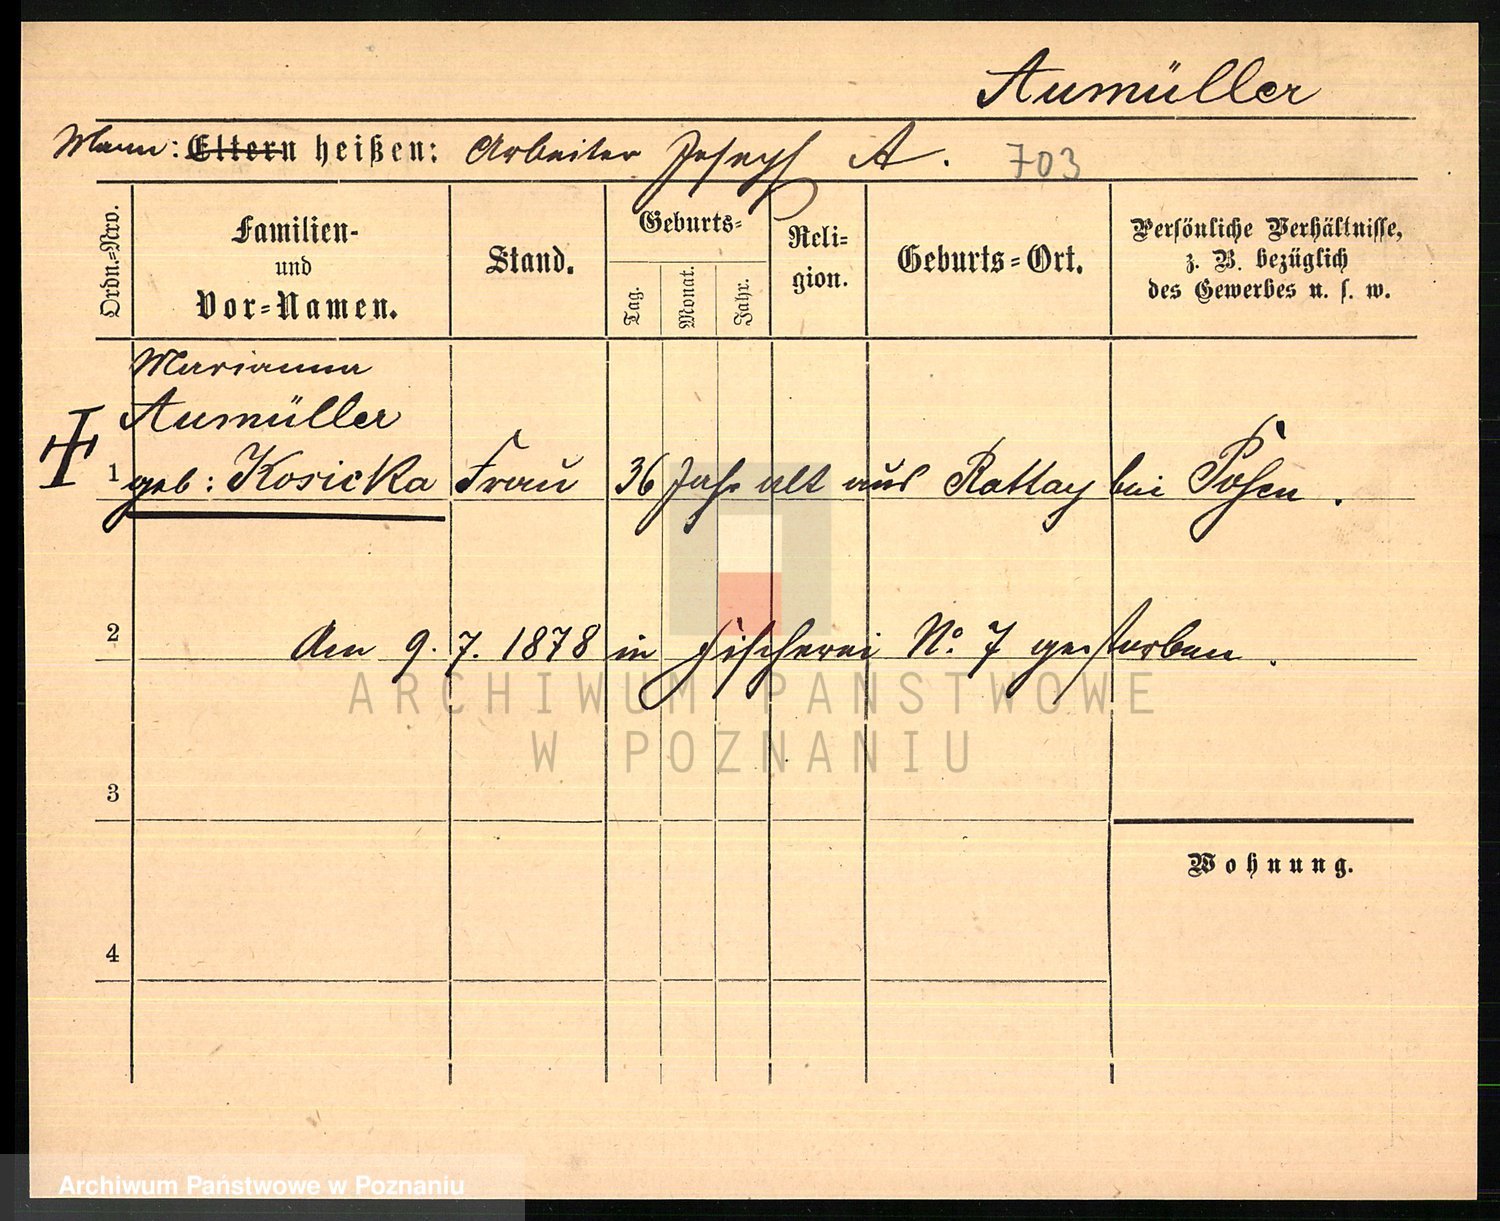 Aumüller
Mann: Eltern heißen: Arbeiter Joseph A. 703
Ordn.-Nro.
Familien-
und
Vor-Namen.
Stand.
Geburts-
Tag.
Monat.
Jahr.
Reli-
gion.
Geburts-Ort.
Persönliche Verhältnisse,
z. B. bezüglich
des Gewerbes u. s. w.
Marianna
Aumüller
1 geb: Kosicka Frau 36 Jahr alt aus Rattay bei Posen.
2 Am 9. 7. 1878 in Fischerei No. 7 gestorben.
ARCHIWUM PAŃSTWOWE
W POZNANIU
3
Wohnung.
4
Archiwum Państwowe w Poznaniu